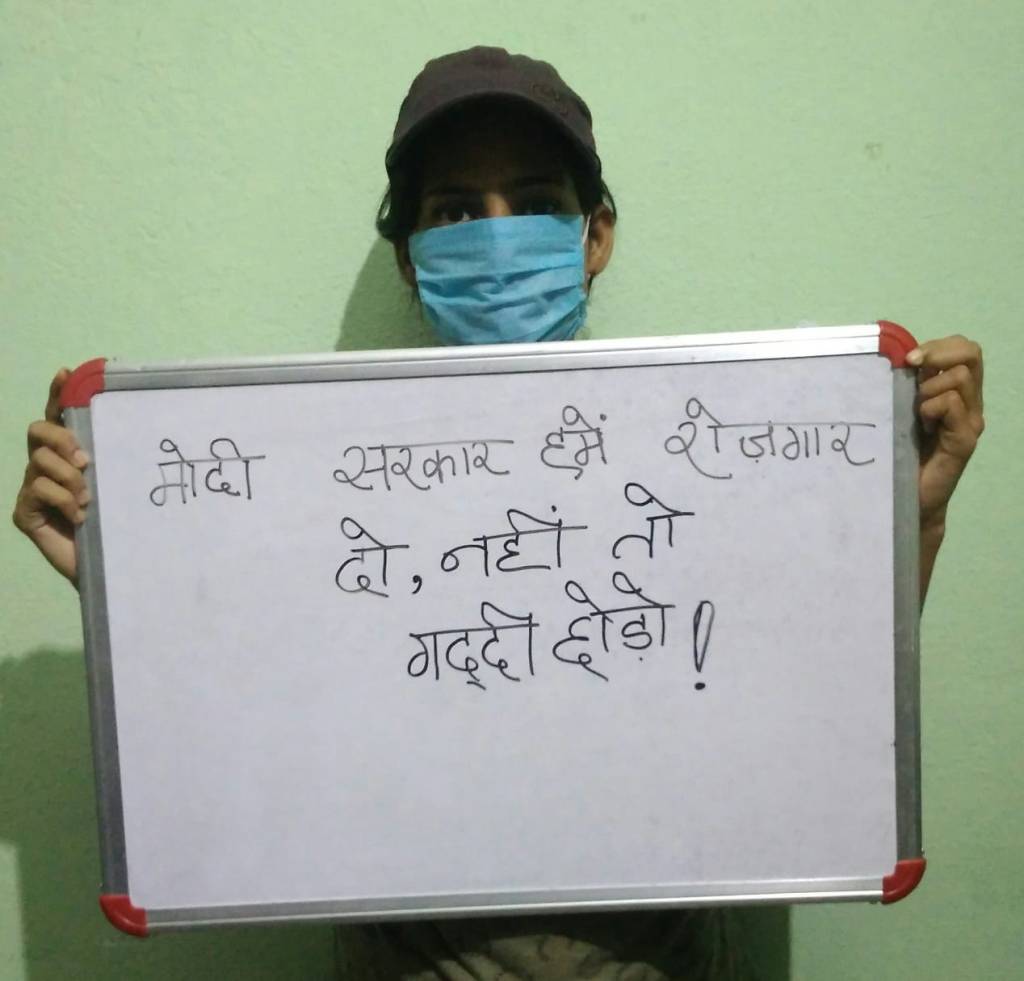 मोदी सरकार हमें रोज़गार
दो, नहीं तो
गद्दी छोड़ो!